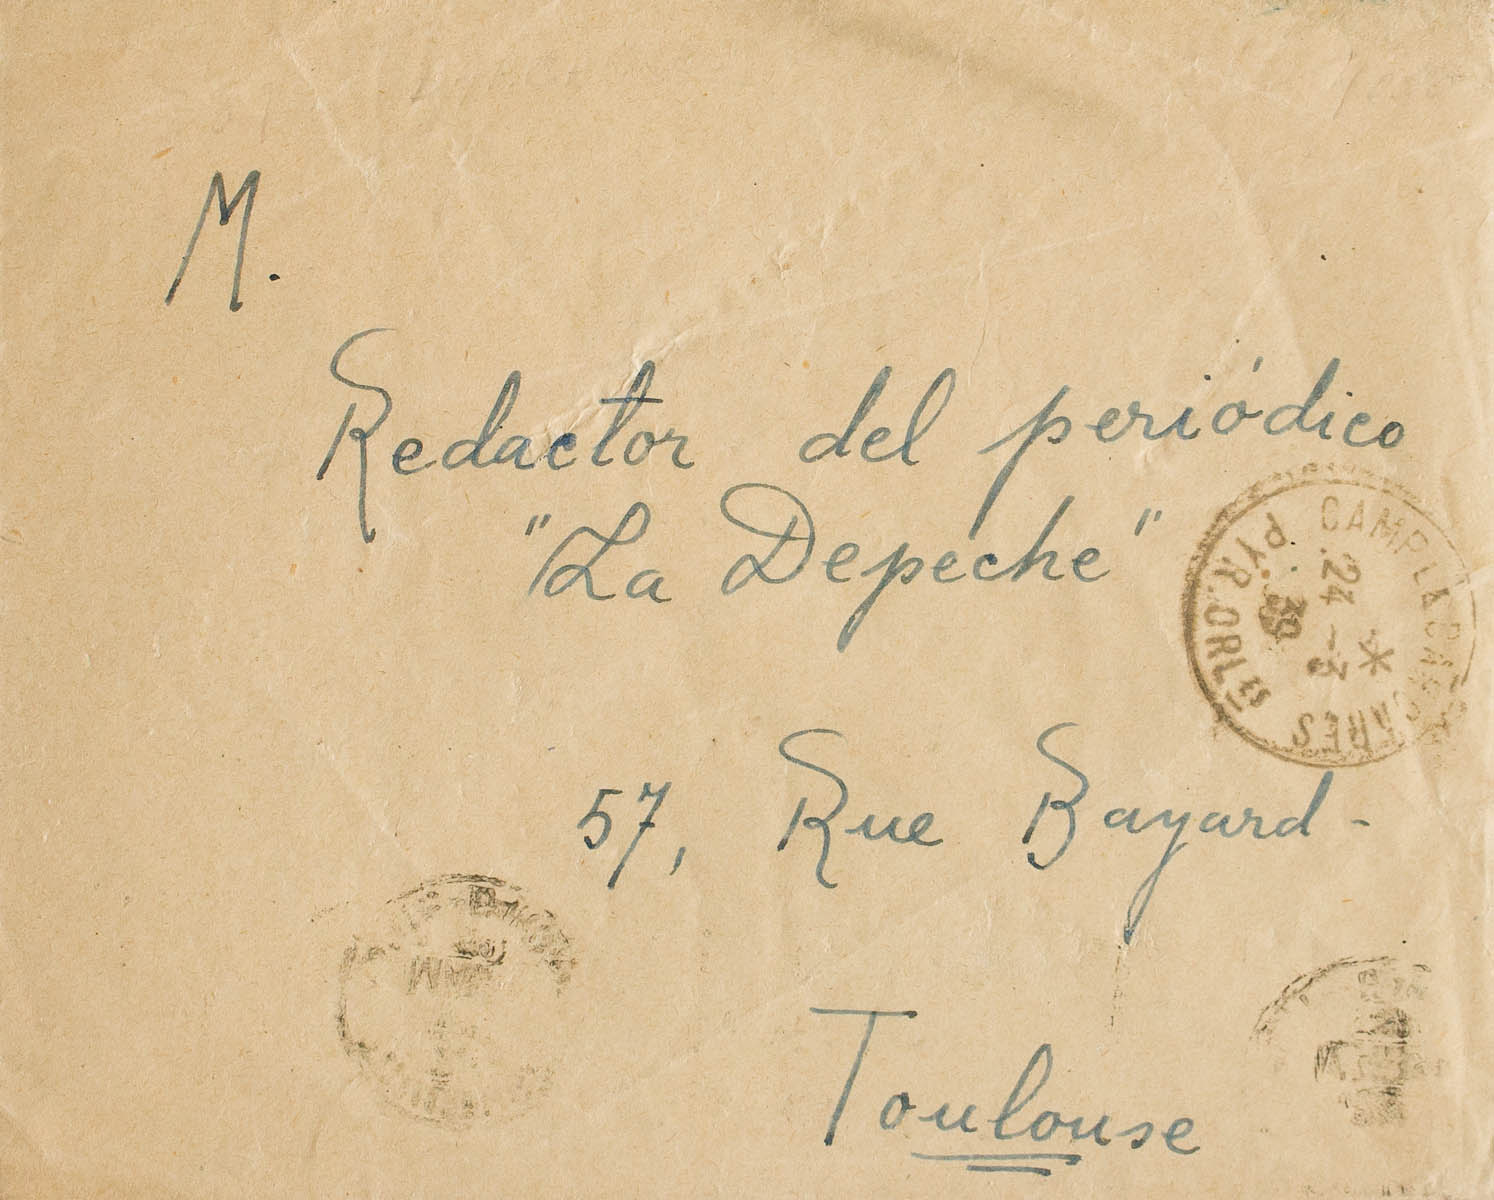 M.
Redactor del periódico
"La Depeche"
57, Rue Bayard -
Toulouse
CAMP
PYR. ORLES
24 -3
39